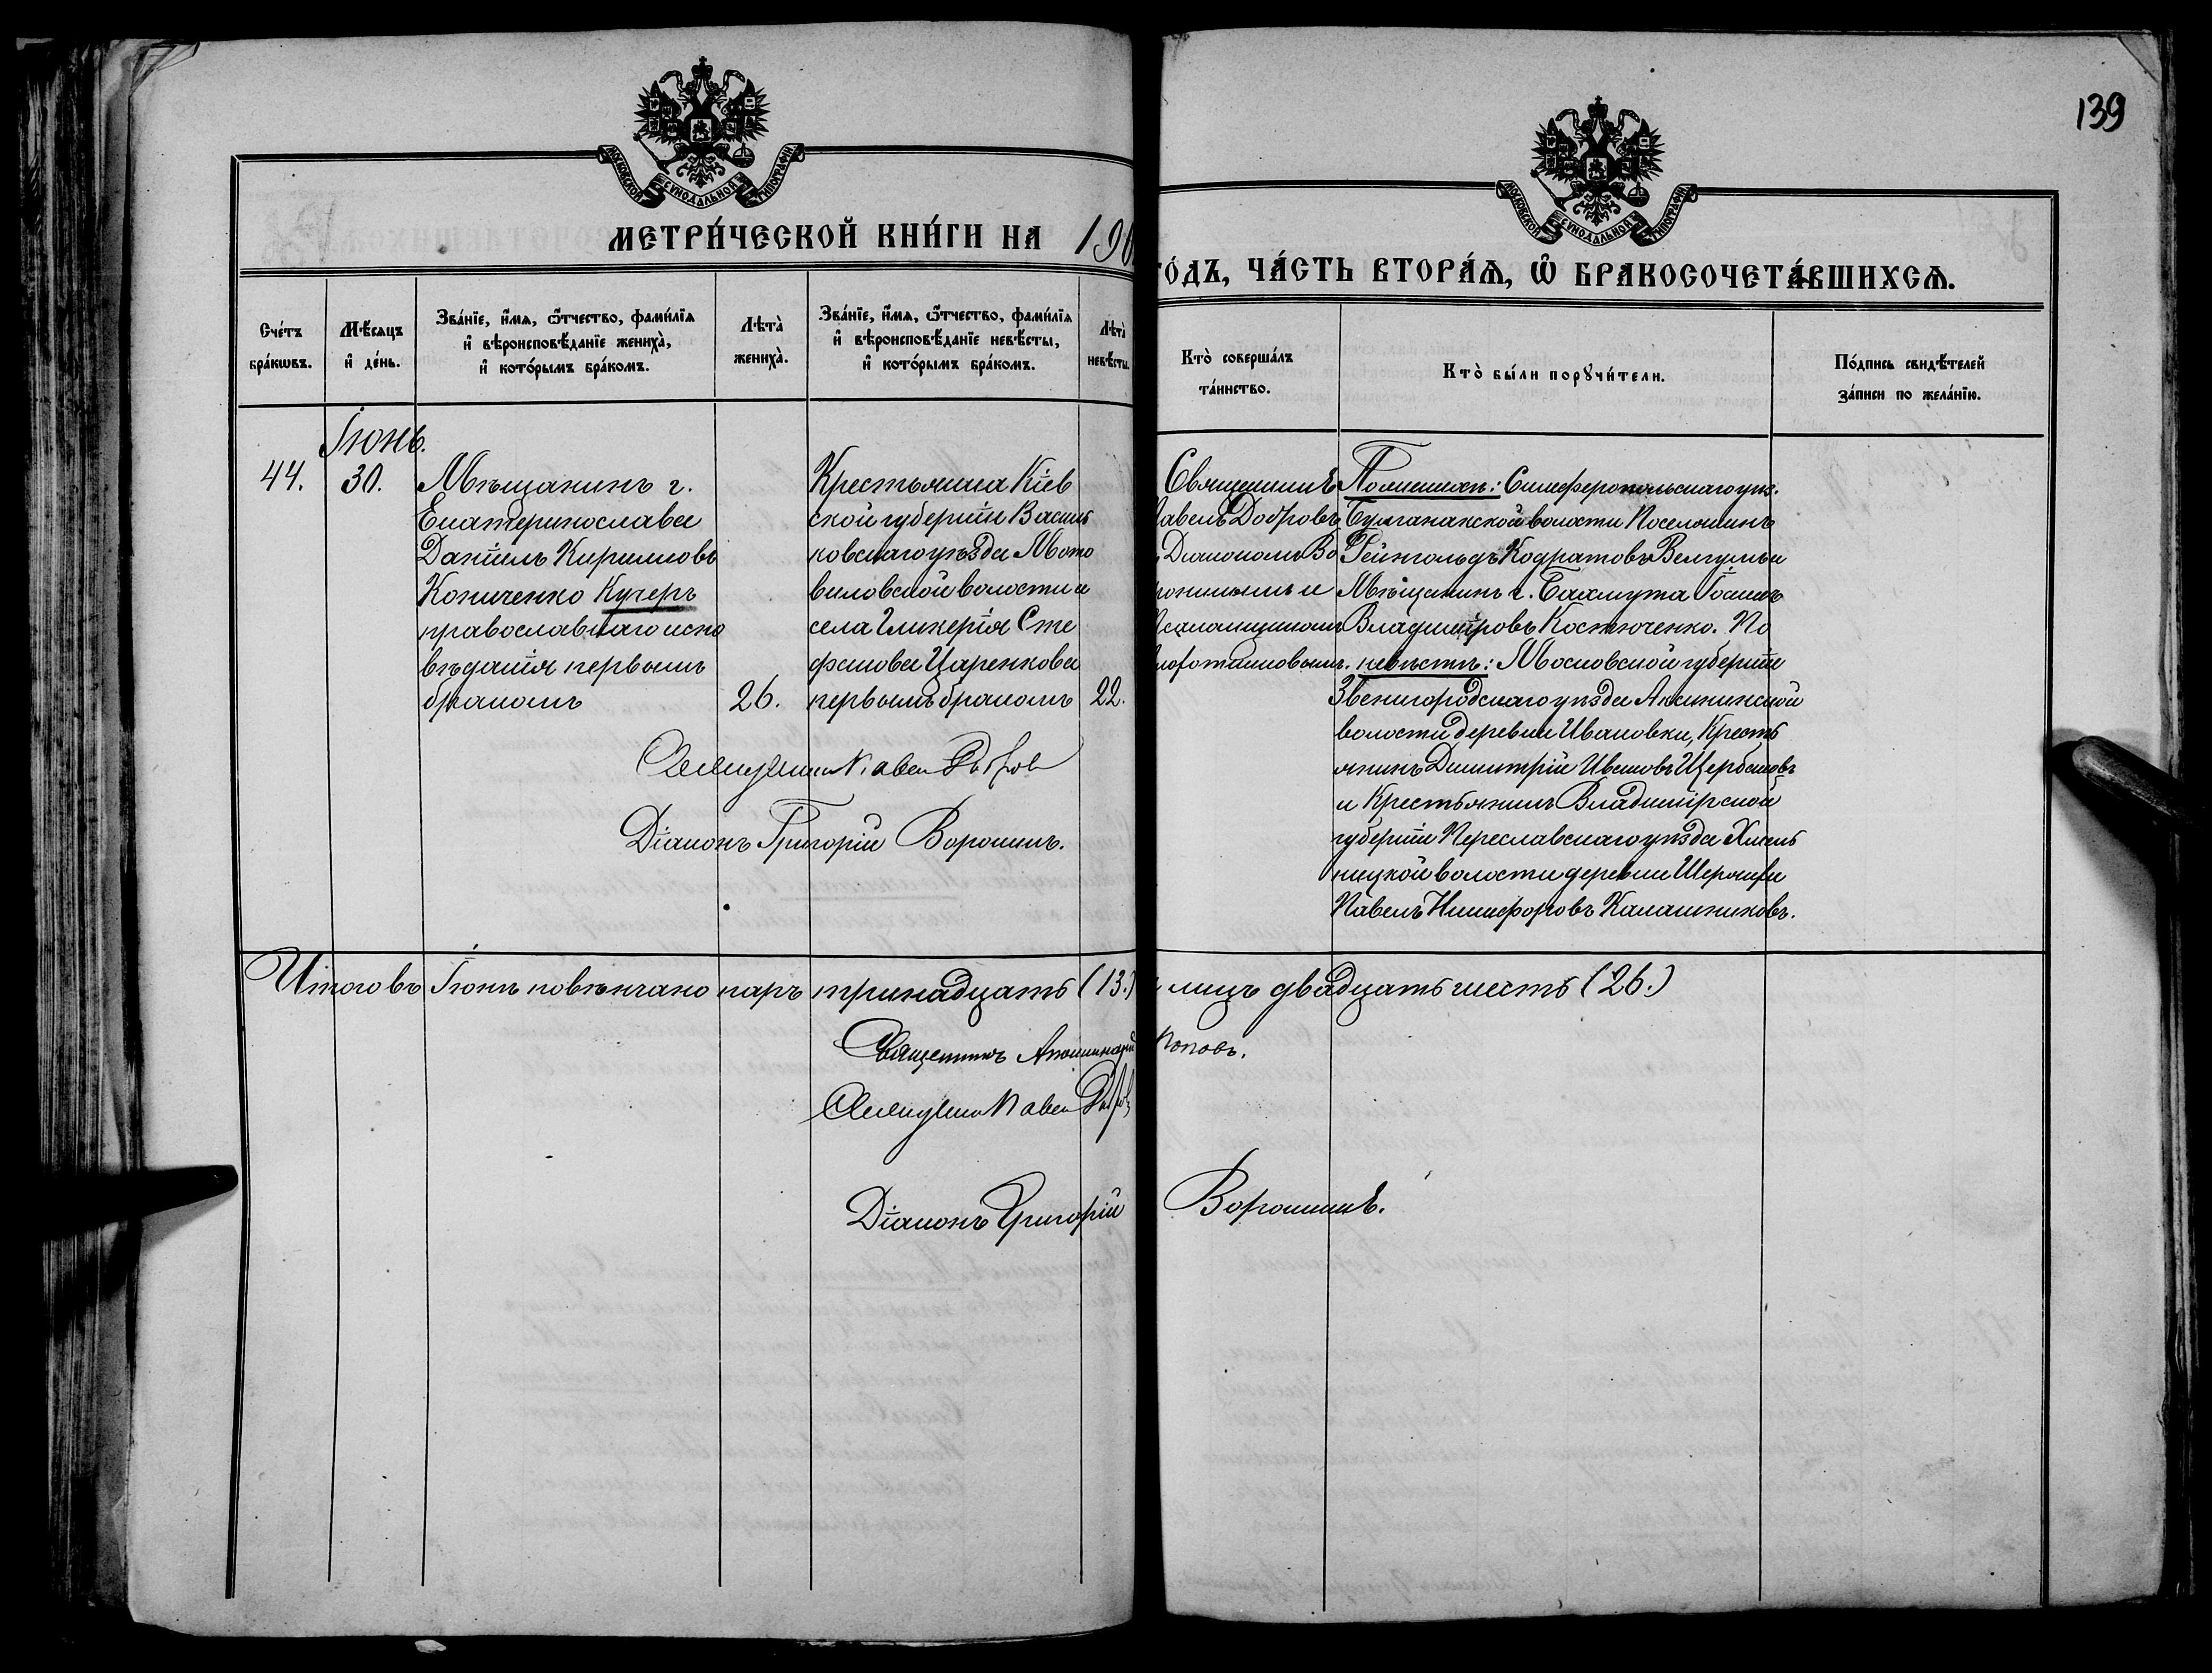 139
МОСКОВСКОЙ СѴНОДАЛЬНОЙ ТИПОГРАФІИ
МОСКОВСКОЙ СѴНОДАЛЬНОЙ ТИПОГРАФІИ
МЕТРИ́ЧЕСКОЙ КНИ́ГИ НА 190
ГО́ДЪ, ЧА́СТЬ ВТОРА́Ѧ, Ѽ БРАКОСОЧЕТА́ВШИХСѦ.
Сче́тъ бра́кѡвъ.
Мѣ́сяцъ и҆ де́нь.
Зва́нїе, и҆́мя, ѻ҆́тчество, фами́лїя
и҆ вѣроисповѣ́данїе жениха̀,
и҆ кото́рымъ бра́комъ.
Лѣта̀ жениха̀.
Зва́нїе, и҆́мя, ѻ҆́тчество, фами́лїя
и҆ вѣроисповѣ́данїе невѣ́сты,
и҆ кото́рымъ бра́комъ.
Лѣта̀ невѣ́сты.
Кто̀ соверша́лъ
та́инство.
Кто̀ бы́ли порꙋчи́тели.
По́дпись свидѣ́телей
за́писи по жела́нїю.
Іюнь.
44.
30.
Мѣщанинъ г.
Екатеринослава
Даніилъ Кирилловъ
Кониченко Кучеръ
православнаго испо
вѣданія первымъ
бракомъ
26.
Крестьянка Кіев
ской губерніи Василь
ковскаго уѣзда Мото
виловской волости и
села Гликерія Сте
фанова Царенкова
первымъ бракомъ
22.
Священникъ
Павелъ Добровъ
Діакономъ Во
рониным и
Псаломщикомъ
По женихѣ: Симферопольскаго уѣз.
Булганакской волости Поселянинъ
Рейнгольдъ Кодратовъ
Мѣщанинъ г. Бахмута
Владиміровъ Костюченко. По
невѣстѣ: Московской губерніи
Звенигородскаго уѣзда Аксининской
волости деревни Ивановки, Кресть
янинъ Димитрій Ивановъ Щербаковъ
и Крестьянинъ Владимірской
губерніи Переславскаго уѣзда Хмель
ницкой волости деревни
Павелъ Никифоровъ Калашниковъ.
Священникъ Павелъ Добровъ
Діаконъ Григорій Воронинъ.
Итого въ Іюнѣ повѣнчано паръ тринадцать (13.) лицъ двадцать шесть (26.)
Священникъ Аполлинарій Поповъ.
Священникъ Павелъ Добровъ
Діаконъ Григорій Воронинъ.